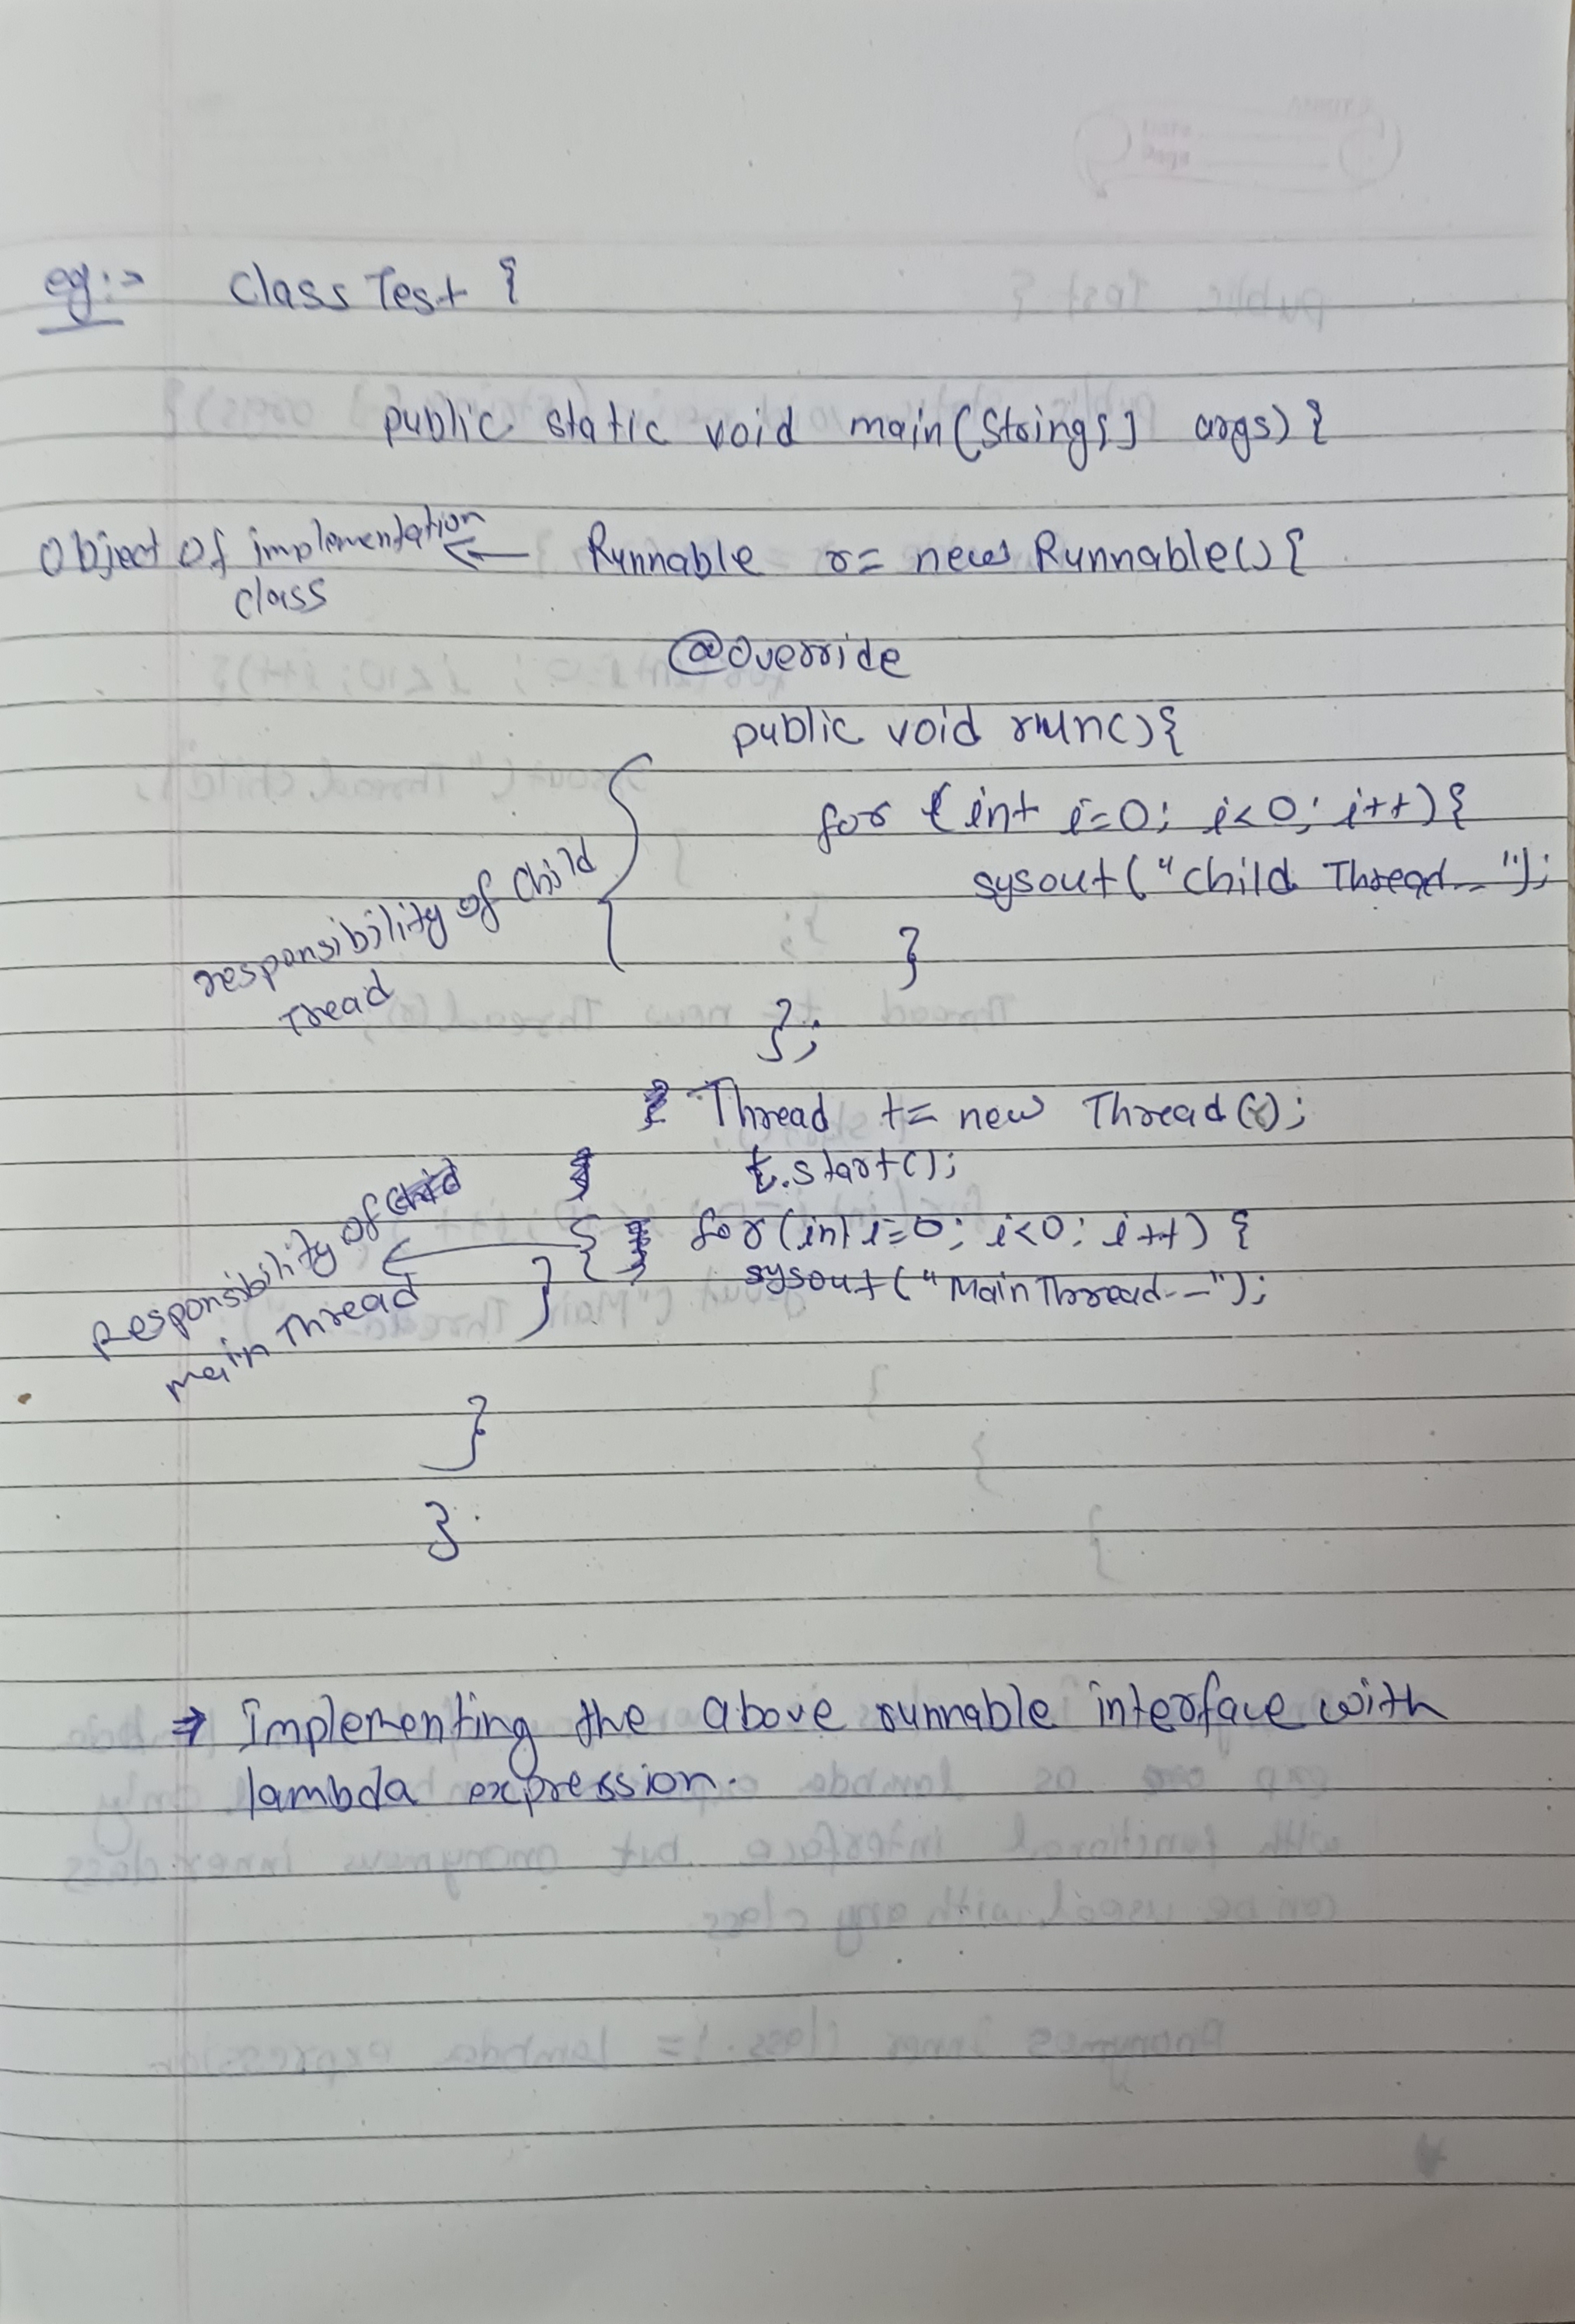 eg:-> Class Test {
public static void main(String[] args) {
Object Of implementation ← Runnable r= new Runnable() {
class
@Override
public void run() {
for (int i=0; i<0; i++) {
sysout("Child Thread--");
responsibility of Child
Tread
}
};
Thread t= new Thread(r);
t.start();
Responsibility of
main Thread
for(int i=0; i<0; i++) {
sysout("Main Thread--");
}
}
}
⇒ Implementing the above runnable interface with
lambda expression.